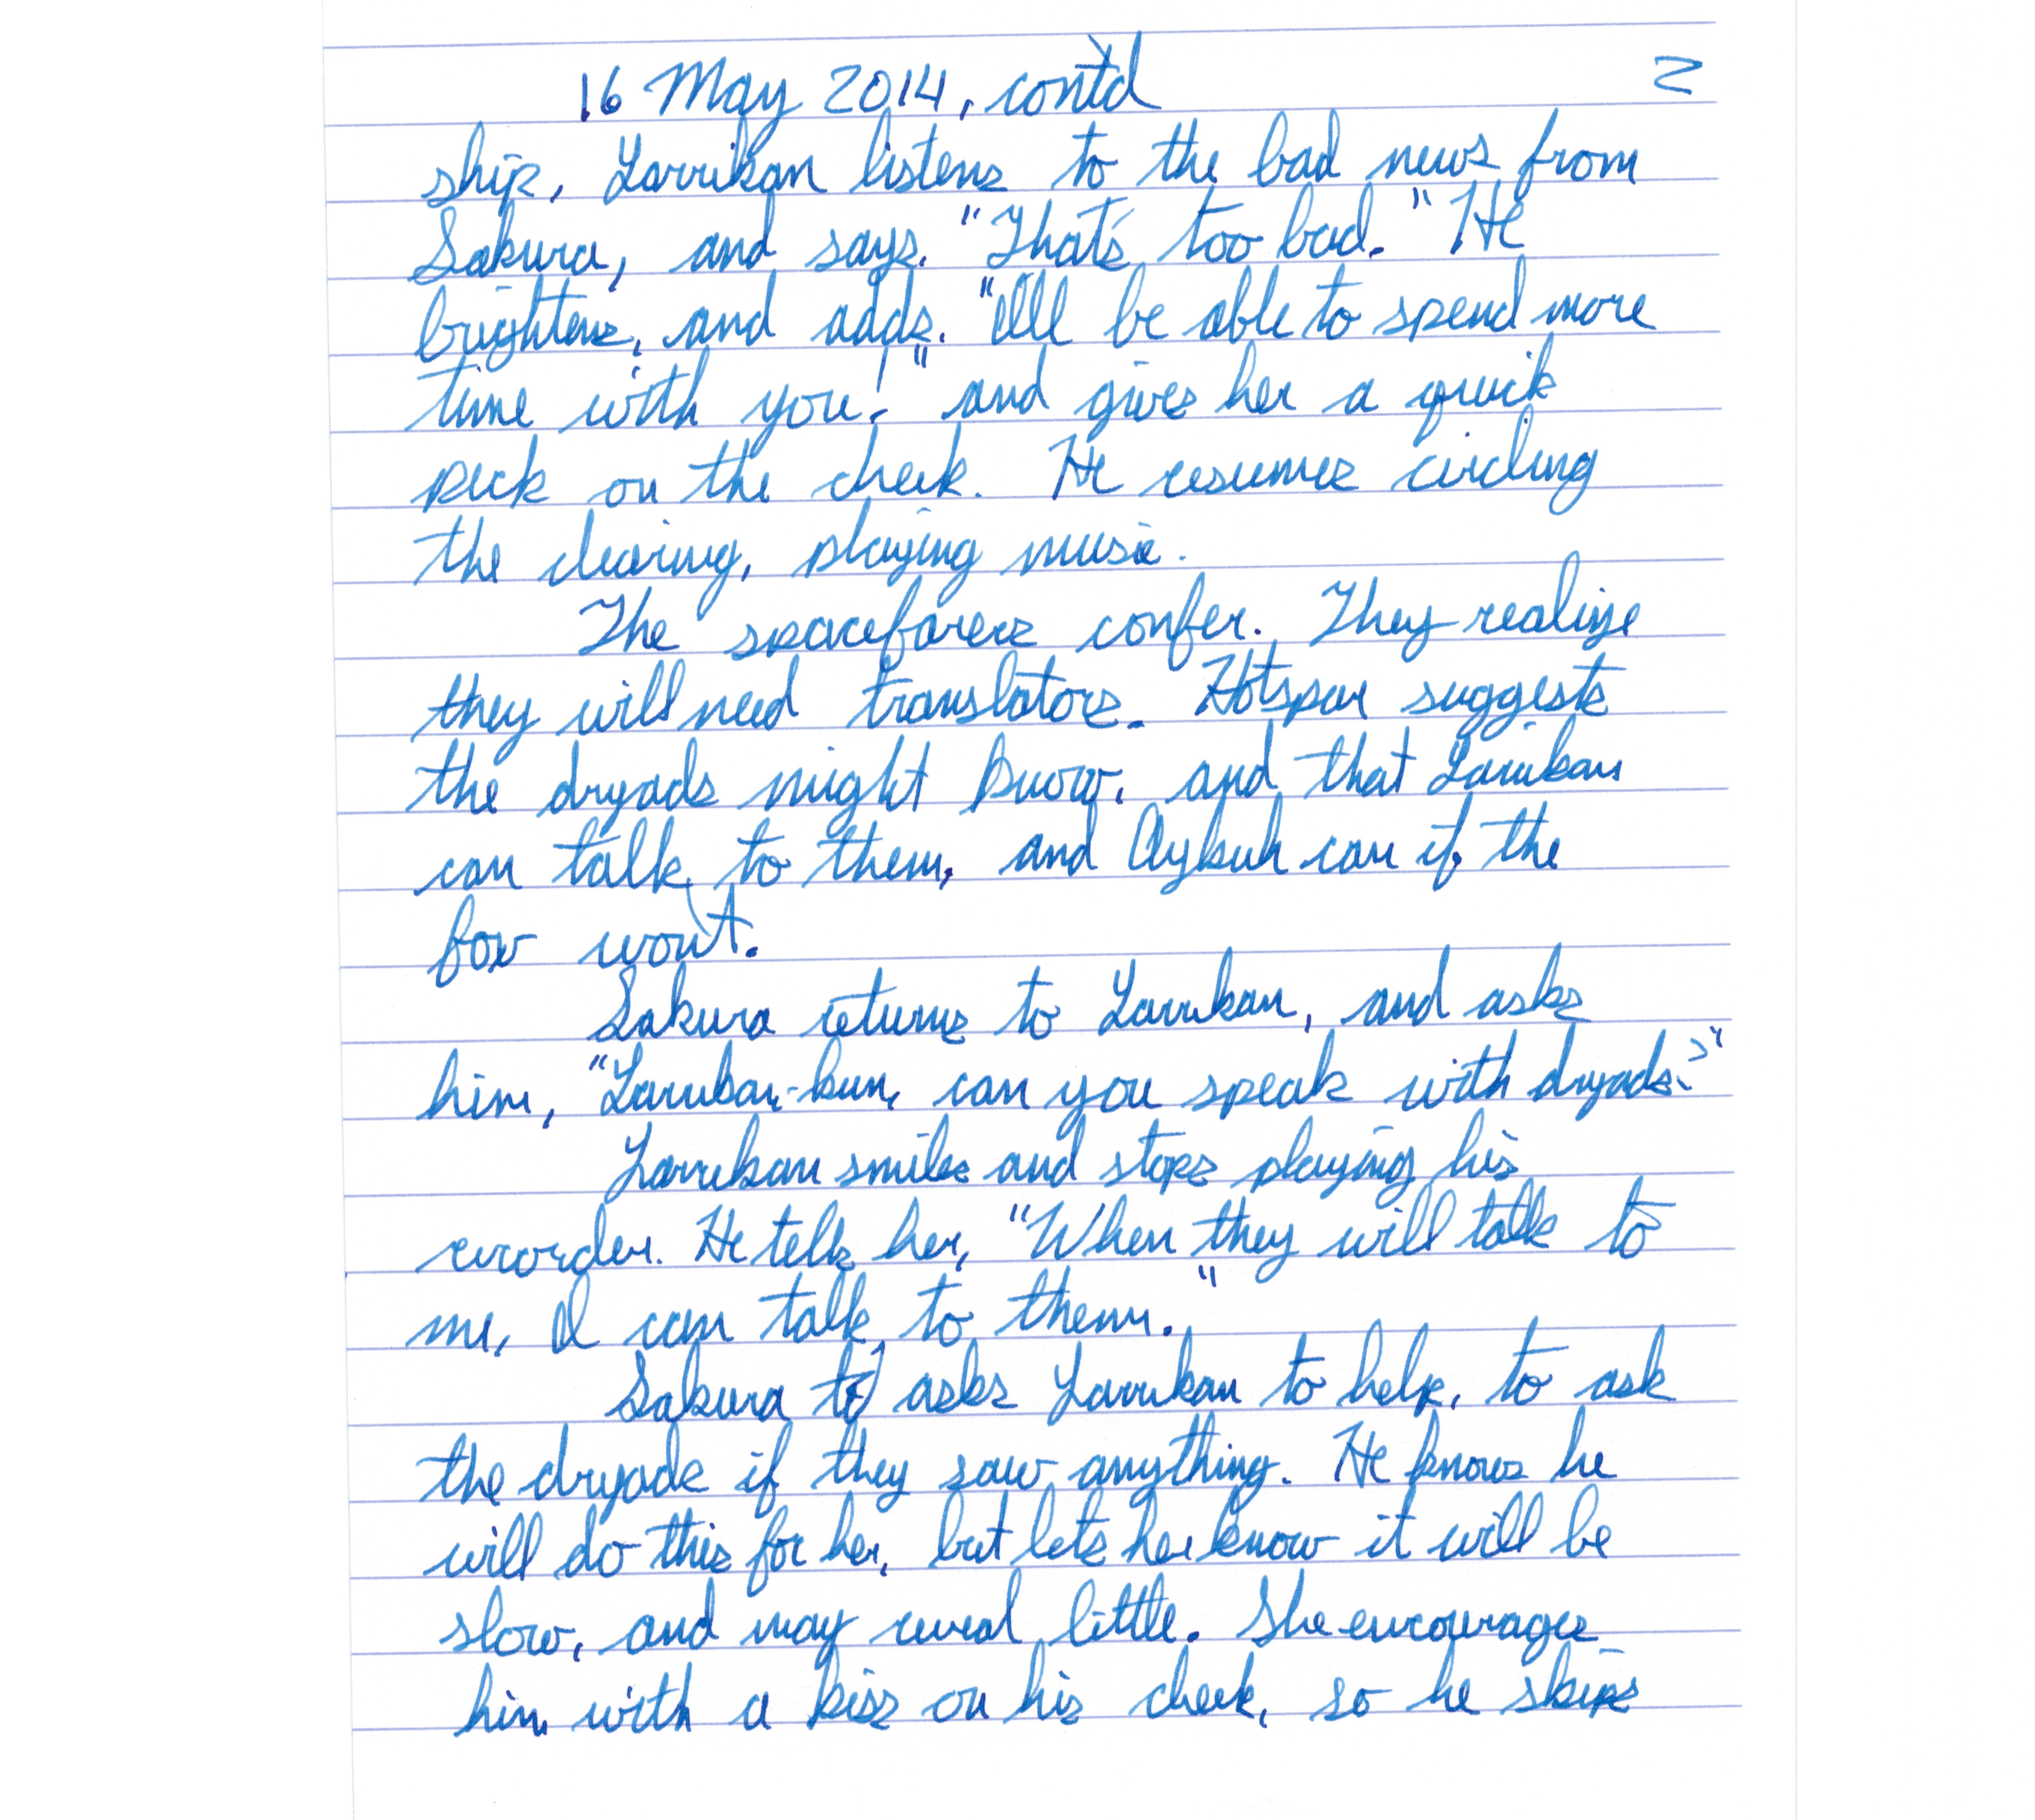 16 May 2014, cont'd 2
ship, Larrikan listens to the bad news from
Sakura, and says. "That's too bad." He
brightens, and adds. "I'll be able to spend more
time with you!" and gives her a quick
peck on the cheek. He resumes circling
the clearing, playing music.
The spacefarers confer. They realize
they will need translators. Hotspur suggests
the dryads might know, and that Larrikan
can talk to them, and Aykuh can if the
fox won't.
Sakura returns to Larrikan, and asks
him, "Larrikan-kun, can you speak with dryads?"
Larrikan smiles and stops playing his
recorder. He tells her, "When they will talk to
me, I can talk to them."
Sakura asks Larrikan to help, to ask
the dryads if they saw anything. He knows he
will do this for her, but lets her know it will be
slow, and may reveal little. She encourages
him with a kiss on his cheek, so he skips